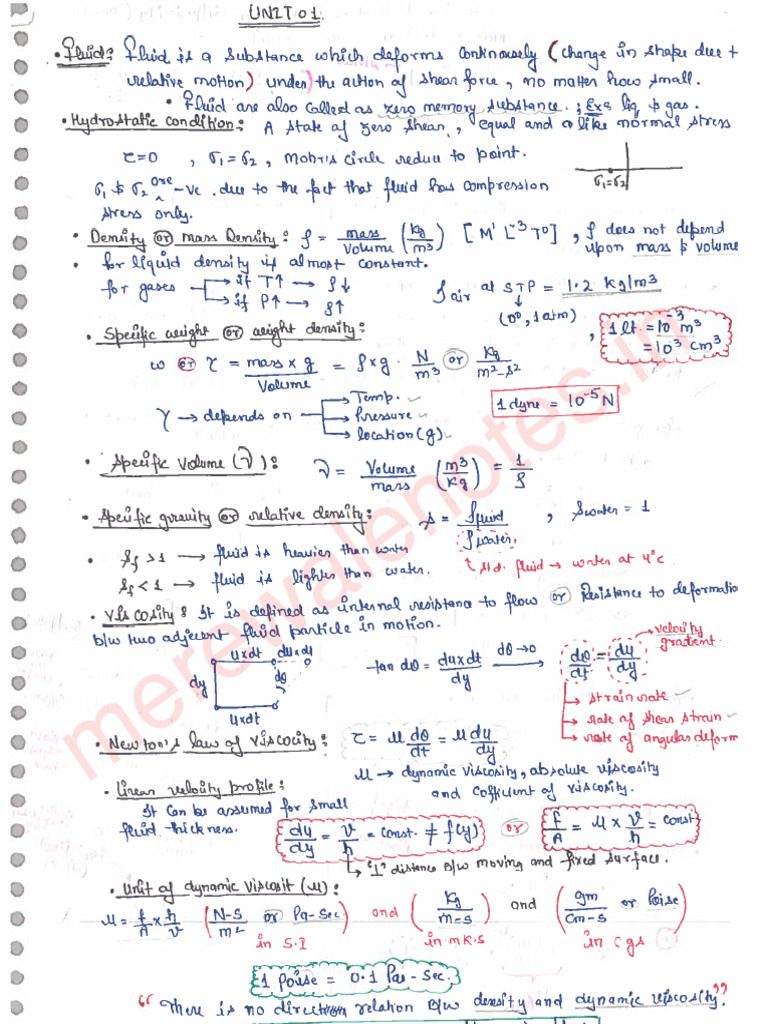 UNIT 01.
• Fluid: Fluid is a substance which deforms continously (change in shape due t
relative motion) under the action of shear force, no matter how small.
• Fluid are also called as zero memory substance. ; Exs liq. & gas.
• Hydrostatic condition: A state of zero shear, equal and alike normal stress
τ=0 , σ1 = σ2 , Mohr's circle reduce to point.
σ1=σ2
σ1 & σ2 are -ve. due to the fact that fluid has compression
stress only.
• Density or mass Density: ρ = mass/Volume (kg/m³) [M¹ L⁻³ T⁰] , ρ does not depend
upon mass & volume
• for liquid density is almost constant.
for gases → if T↑ → ρ↓
→ if P↑ → ρ↑
ρair at STP = 1.2 kg/m3
(0°, 1 atm)
, 1 lt. = 10⁻³ m³
= 10³ cm³
• Specific weight or weight density:
w or γ = mass x g/Volume = ρ x g . N/m³ or kg/m²-s²
γ → depends on → Temp.
→ Pressure
→ location (g)
1 dyne = 10⁻⁵ N
• Specific Volume (ν):
ν = Volume/mass (m³/kg) = 1/ρ
• Specific gravity or relative density: s = ρfluid/ρwater , Swater = 1
std. fluid → water at 4°c
• Sf > 1 → fluid is heavier than water
Sf < 1 → fluid is lighter than water.
• Viscosity: It is defined as internal resistance to flow or Resistance to deformatio
b/w two adjecent fluid particle in motion.
uxdt duxdy
dy dθ
uxdt
tan dθ = duxdt/dy dθ→0 → dθ/dt = du/dy
velocity
gradient
→ strain rate
→ rate of shear strain
→ rate of angular deform
• Newton's law of Viscocity: τ = μ dθ/dt = μ du/dy
μ → dynamic viscosity, absolute viscosity
and cofficient of viscosity.
• linear velocity profile:
It can be assumed for small
fluid thickness.
du/dy = V/h = const. ≠ f(y) or F/A = μ x V/h = const
→ "⊥" distance b/w moving and fixed surface.
• Unit of dynamic viscosit (μ):
μ = F/A x h/v (N-S/m² or Pa-Sec) and (kg/m-s) and (gm/cm-s or Poise)
in S.I in mK.S in cgs
1 Poise = 0.1 Pa-Sec.
“There is no direction relation b/w density and dynamic viscosity.”
merewalenotes.in